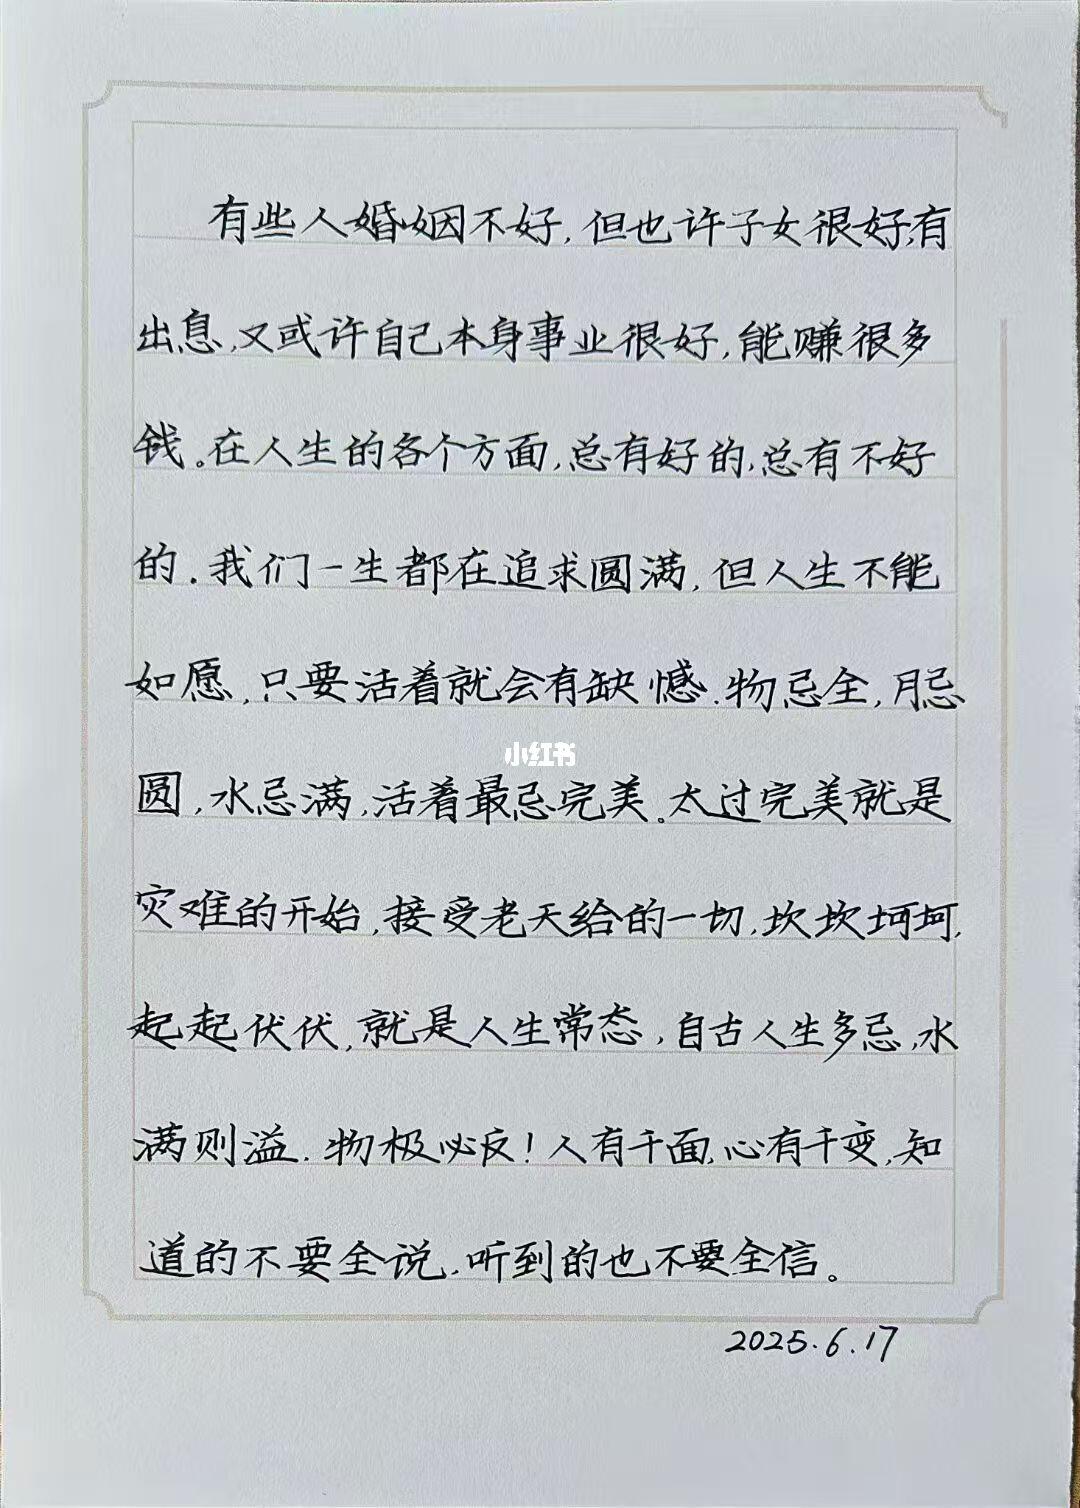 有些人婚姻不好,但也许子女很好,有
出息,又或许自己本身事业很好,能赚很多
钱。在人生的各个方面,总有好的,总有不好
的.我们一生都在追求圆满,但人生不能
如愿,只要活着就会有缺憾.物忌全,月忌
小红书
圆,水忌满,活着最忌完美。太过完美就是
灾难的开始,接受老天给的一切,坎坎坷坷,
起起伏伏,就是人生常态,自古人生多忌,水
满则溢.物极必反!人有千面,心有千变,知
道的不要全说.听到的也不要全信。
2025.6.17